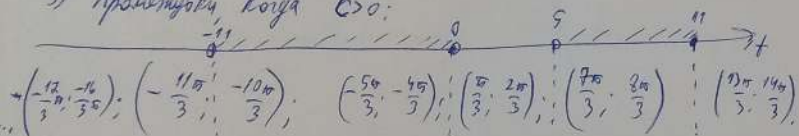 3) Промежутки, когда C>0:
-11 0 5 11 t
-(-17π/3; -16π/3); (-11π/3; -10π/3); (-5π/3; -4π/3); (π/3; 2π/3); (7π/3; 8π/3) (13π/3; 14π/3)